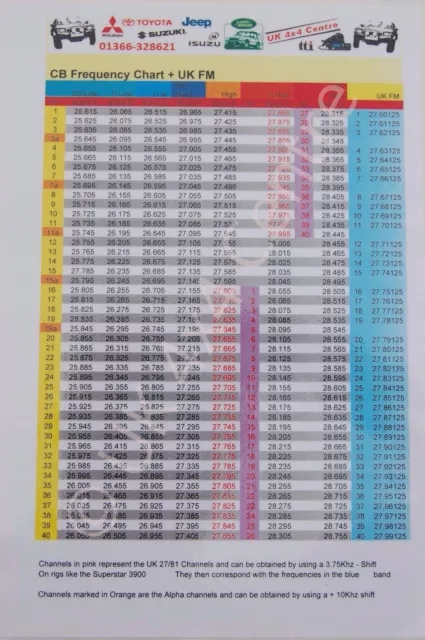 MITSUBISHI TOYOTA Jeep
SUZUKI ISUZU LAND ROVER UK 4x4 Centre
01366-328621 tti
CB Frequency Chart + UK FM
High UK FM
1 25.615 26.065 26.515 26.965 27.415 27.865 27 28.315 1 27.60125
2 25.625 26.075 26.525 26.975 27.425 27.875 28 28.325 2 27.61125
3 25.635 26.085 26.535 26.985 27.435 27.885 29 28.335 3 27.62125
3a 25.645 26.095 26.545 26.995 27.445 27.895 30 28.345
4 25.655 26.105 26.555 27.005 27.455 27.905 31 28.355 4 27.63125
5 25.665 26.115 26.565 27.015 27.465 27.915 32 28.365 5 27.64125
6 25.675 26.125 26.575 27.025 27.475 27.925 33 28.375 6 27.65125
7 25.685 26.135 26.585 27.035 27.485 27.935 34 28.385 7 27.66125
7a 25.695 26.145 26.595 27.045 27.495 27.945 35 28.395
8 25.705 26.155 26.605 27.055 27.505 27.955 36 28.405 8 27.67125
9 25.715 26.165 26.615 27.065 27.515 27.965 37 28.415 9 27.68125
10 25.725 26.175 26.625 27.075 27.525 27.975 38 28.425 10 27.69125
11 25.735 26.185 26.635 27.085 27.535 27.985 39 28.435 11 27.70125
11a 25.745 26.195 26.645 27.095 27.545 27.995 40 28.445
12 25.755 26.205 26.655 27.105 27.555 28.005 28.455 12 27.71125
13 25.765 26.215 26.665 27.115 27.565 28.015 28.465 13 27.72125
14 25.775 26.225 26.675 27.125 27.575 28.025 28.475 14 27.73125
15 25.785 26.235 26.685 27.135 27.585 28.035 28.485 15 27.74125
15a 25.795 26.245 26.695 27.145 27.595 28.045 28.495
16 25.805 26.255 26.705 27.155 27.605 1 28.055 28.505 16 27.75125
17 25.815 26.265 26.715 27.165 27.615 2 28.065 28.515 17 27.76125
18 25.825 26.275 26.725 27.175 27.625 3 28.075 28.525 18 27.77125
19 25.835 26.285 26.735 27.185 27.635 4 28.085 28.535 19 27.78125
19a 25.845 26.295 26.745 27.195 27.645 5 28.095 28.545
20 25.855 26.305 26.755 27.205 27.655 6 28.105 28.555 20 27.79125
21 25.865 26.315 26.765 27.215 27.665 7 28.115 28.565 21 27.80125
22 25.875 26.325 26.775 27.225 27.675 8 28.125 28.575 22 27.81125
23 25.885 26.335 26.785 27.235 27.685 9 28.135 28.585 23 27.82125
24 25.895 26.345 26.795 27.245 27.695 10 28.145 28.595 24 27.83125
25 25.905 26.355 26.805 27.255 27.705 11 28.155 28.605 25 27.84125
26 25.915 26.365 26.815 27.265 27.715 12 28.165 28.615 26 27.85125
27 25.925 26.375 26.825 27.275 27.725 13 28.175 28.625 27 27.86125
28 25.935 26.385 26.835 27.285 27.735 14 28.185 28.635 28 27.87125
29 25.945 26.395 26.845 27.295 27.745 15 28.195 28.645 29 27.88125
30 25.955 26.405 26.855 27.305 27.755 16 28.205 28.655 30 27.89125
31 25.965 26.415 26.865 27.315 27.765 17 28.215 28.665 31 27.90125
32 25.975 26.425 26.875 27.325 27.775 18 28.225 28.675 32 27.91125
33 25.985 26.435 26.885 27.335 27.785 19 28.235 28.685 33 27.92125
34 25.995 26.445 26.895 27.345 27.795 20 28.245 28.695 34 27.93125
35 26.005 26.455 26.905 27.355 27.805 21 28.255 28.705 35 27.94125
36 26.015 26.465 26.915 27.365 27.815 22 28.265 28.715 36 27.95125
37 26.025 26.475 26.925 27.375 27.825 23 28.275 28.725 37 27.96125
38 26.035 26.485 26.935 27.385 27.835 24 28.285 28.735 38 27.97125
39 26.045 26.495 26.945 27.395 27.845 25 28.295 28.745 39 27.98125
40 26.055 26.505 26.955 27.405 27.855 26 28.305 28.755 40 27.99125
Channels in pink represent the UK 27/81 Channels and can be obtained by using a 3.75Khz - Shift
On rigs like the Superstar 3900 They then correspond with the frequencies in the blue band
Channels marked in Orange are the Alpha channels and can be obtained by using a + 10Khz shift